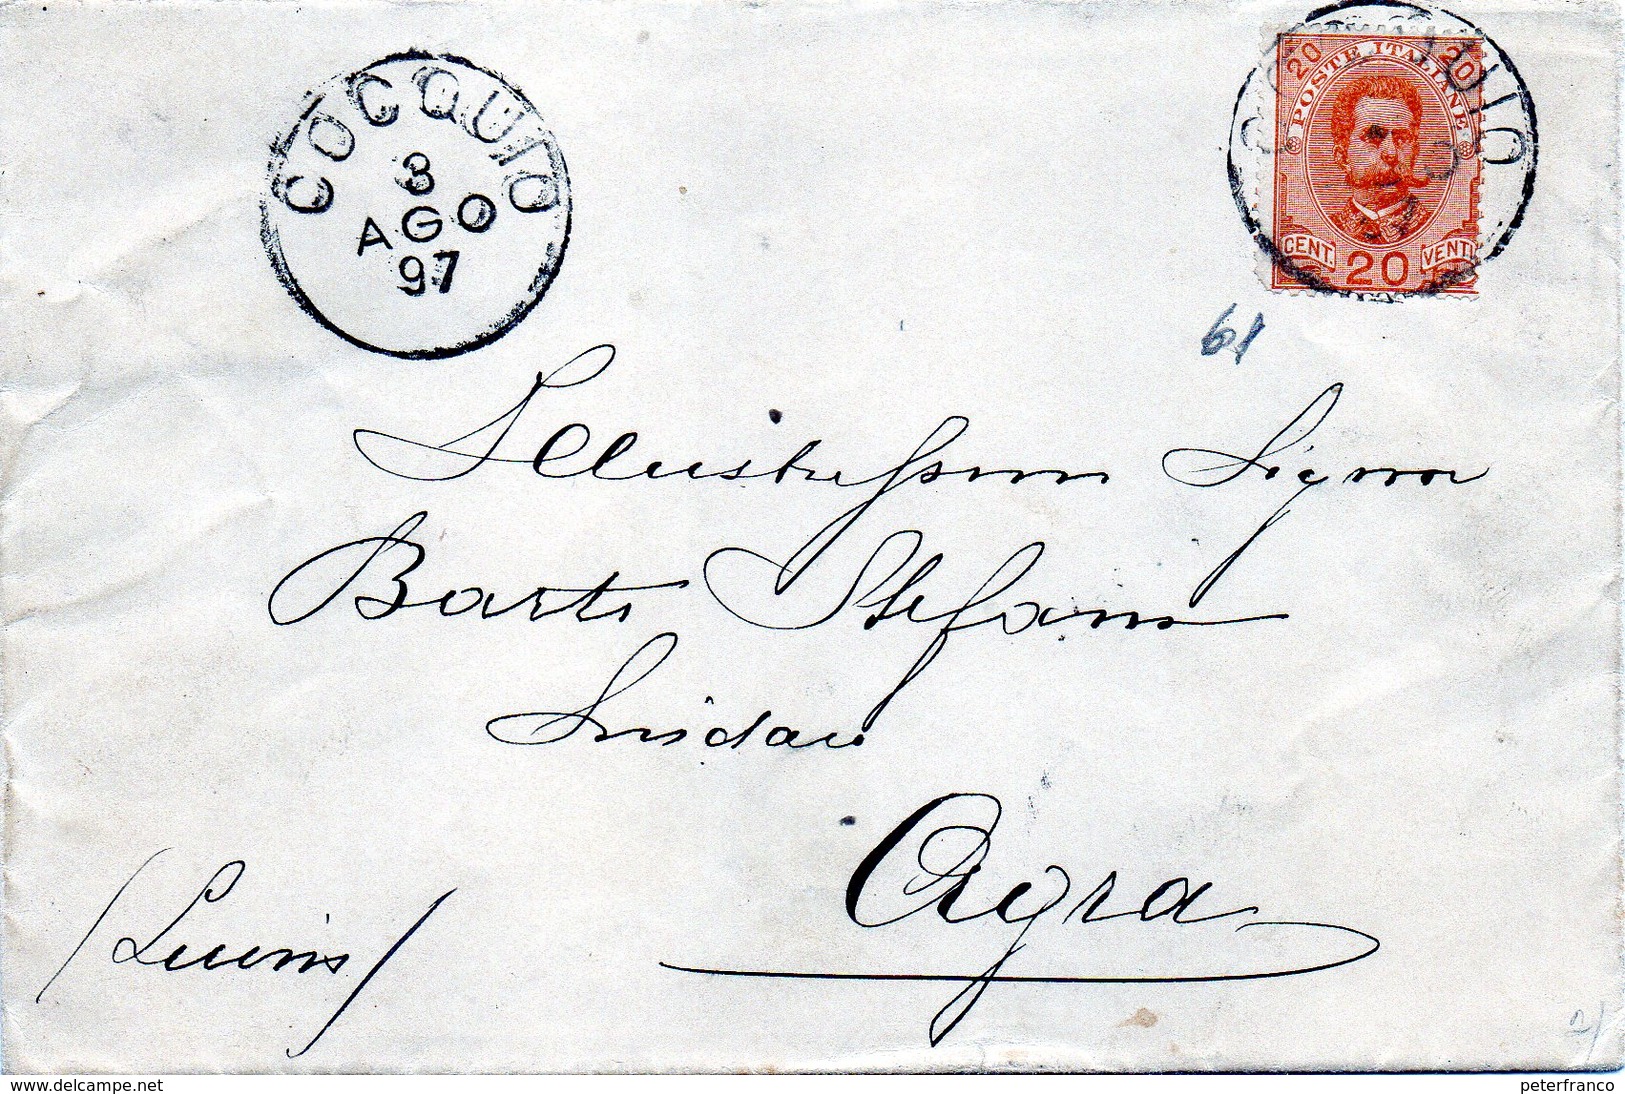 COCQUIO
3
AGO
97
COCQUIO
20 20
POSTE ITALIANE
CENT. 20 VENTI
61
Illustrissimo Signor
Barti Stefano
Sindaco
Agra
(Luvinis)
2)
www.delcampe.net
peterfranco